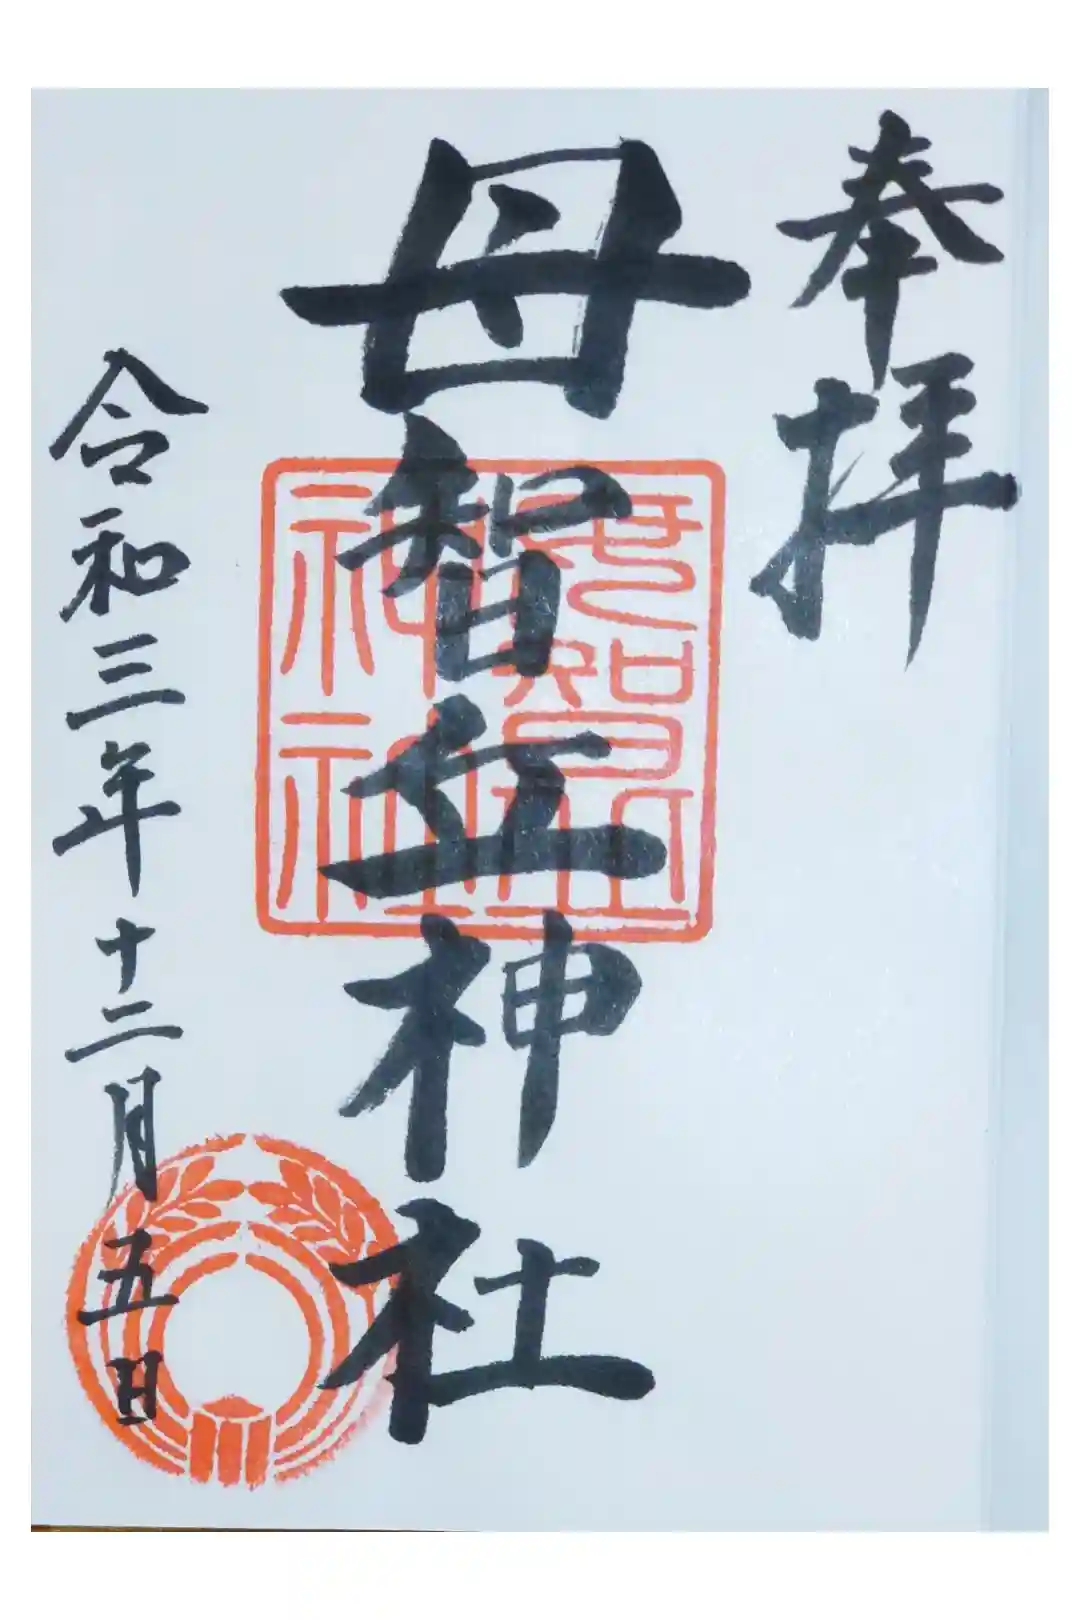 奉拝
母智丘神社
母智丘
神社
令和三年十二月五日